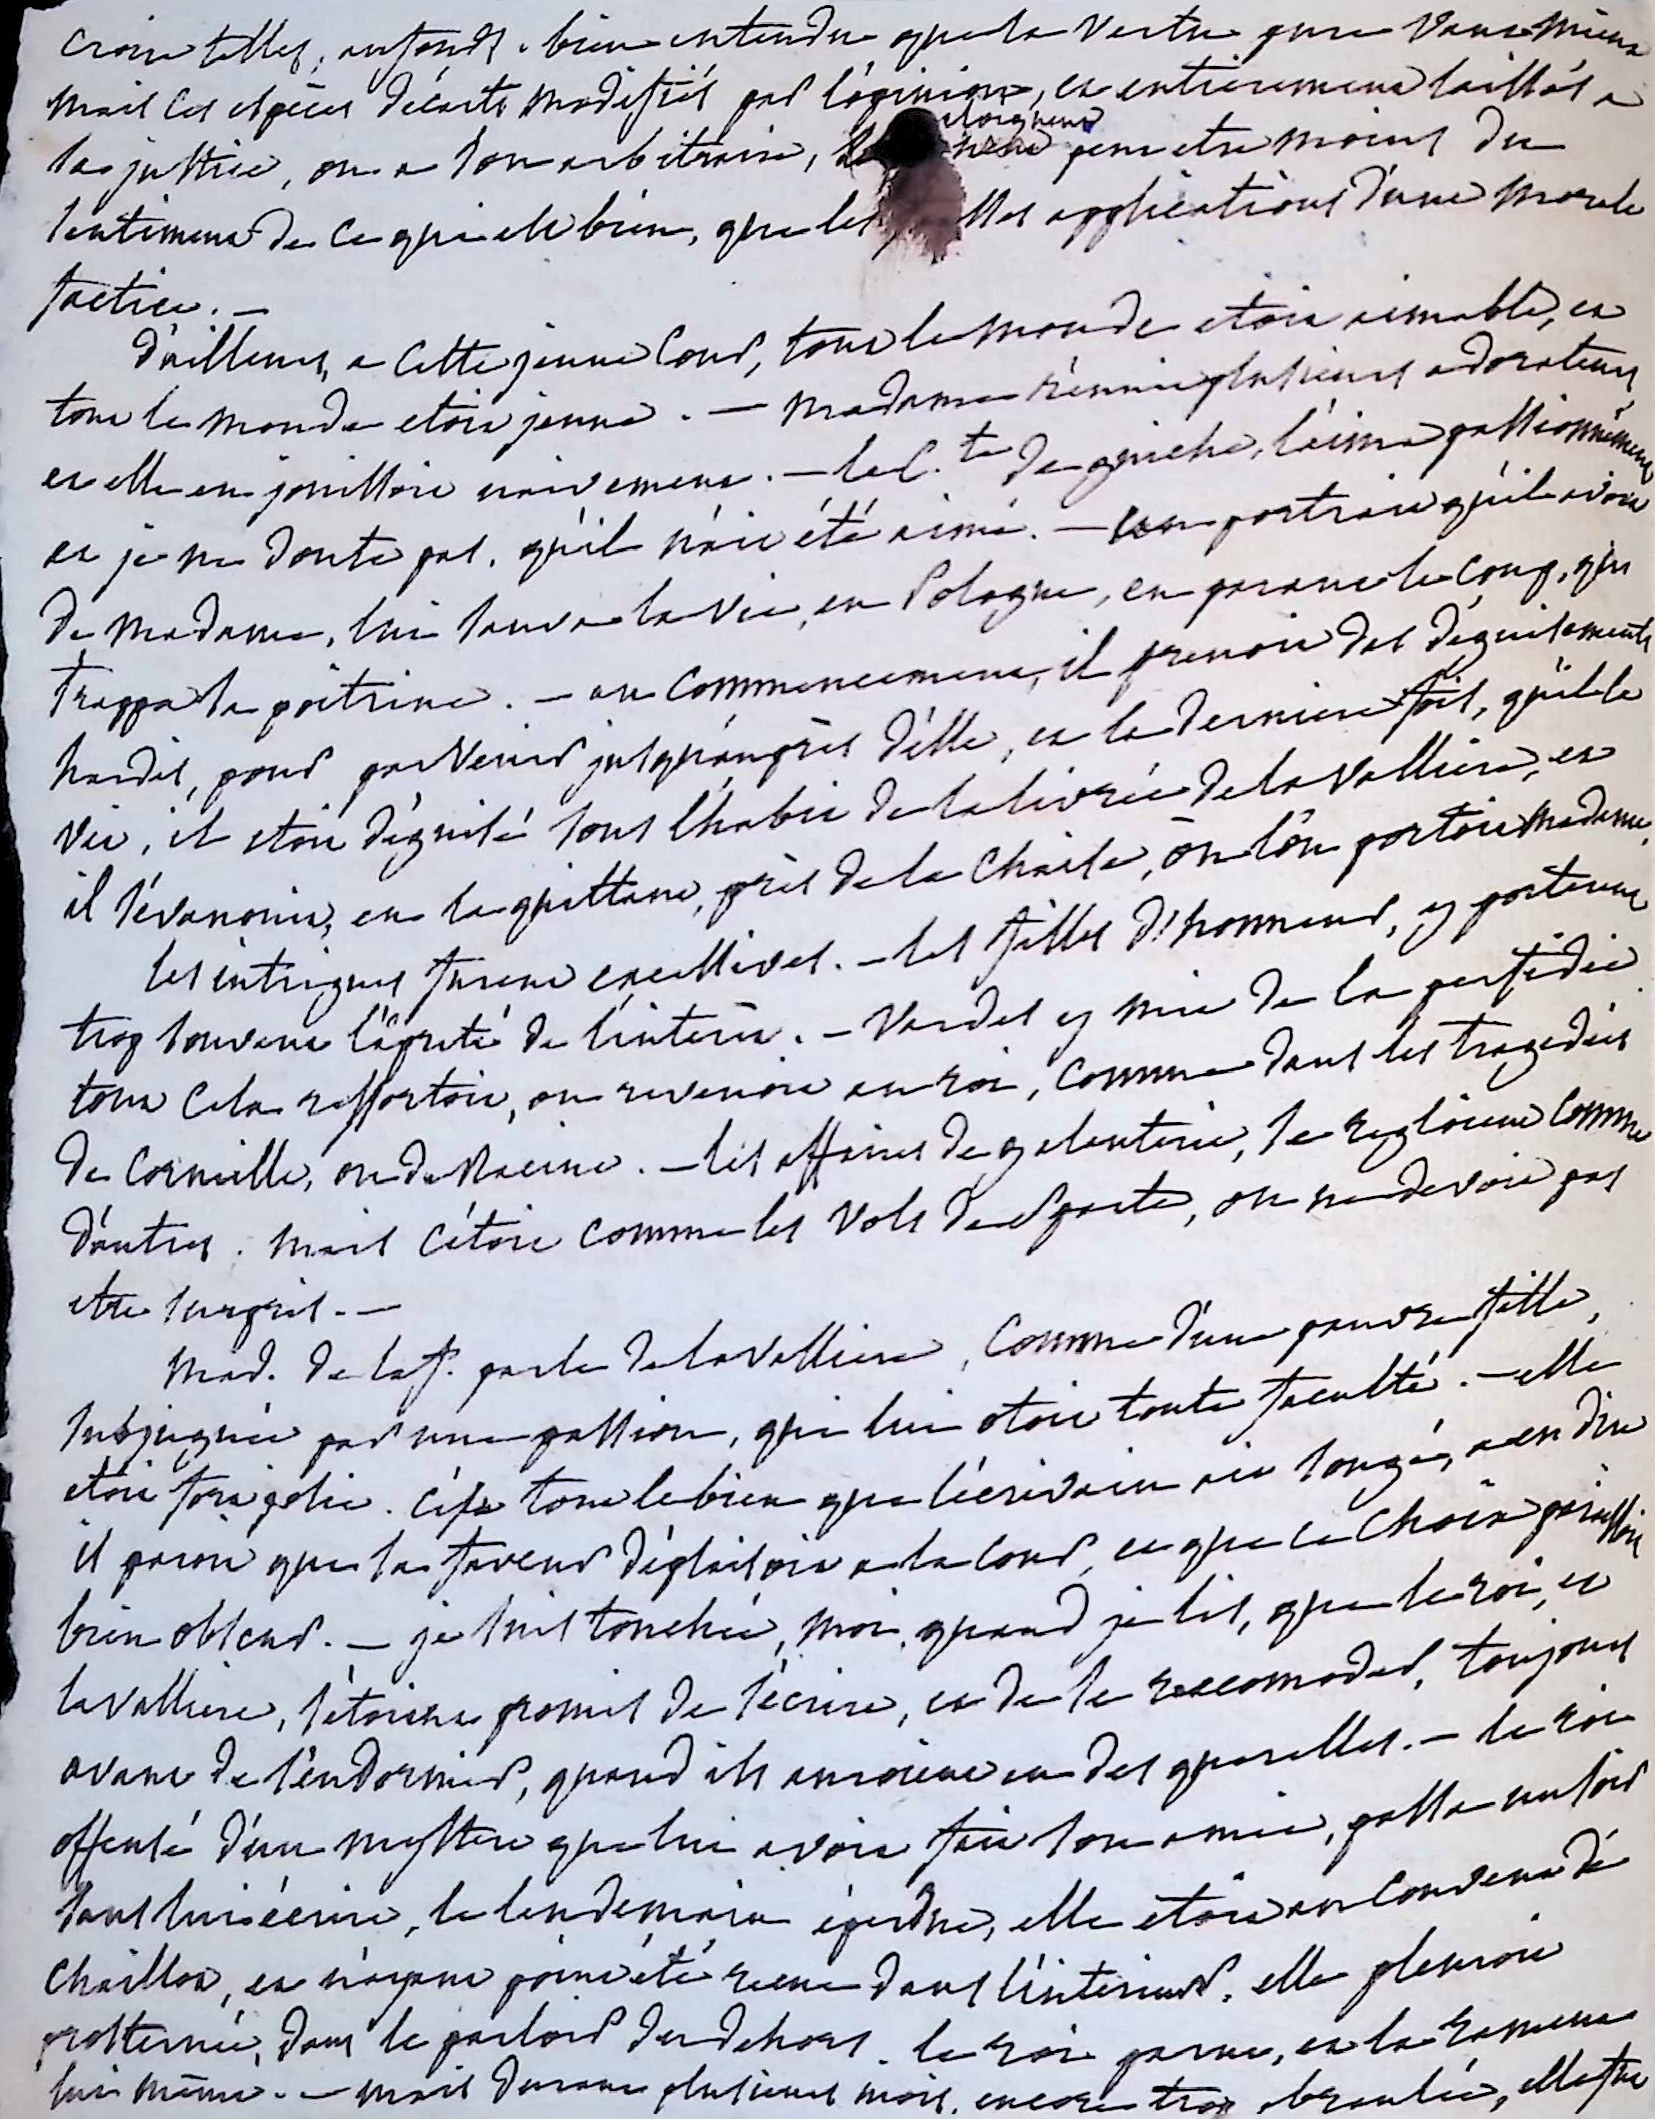 croire telles, au fonds. bien entendu que la vertu pure vaux mieux
mais ces especes d'écarts modifiés par l'opinion, et entierement laissés a
la justice, ou a son arbitraire, eloignent peut etre moins du
sentiment de ce qui est bien, que les applications d'une morale
factice. —
d'ailleurs, a cette jeune Cour, tout le monde etoit aimable, et
tout le monde etoit jeune. — Madame réunit plusieurs adorateurs,
et elle en jouissoit naivement. — le C.te de guiche, l'aima passionnément
et je ne doute pas, qu'il n'ait été aimé. — un portrait qu'il avoit
de Madame, lui sauva la vie, en Pologne, en parant le coup, qui
frappa sa poitrine. — au commencement, il prenoit des déguisements
hardis, pour parvenir jusqu'auprès d'elle, et la derniere fois, qu'il la
vit, il etoit déguisé sous l'habit de la livrée de la Valliere, et
il s'évanouit, en la quittant, près de la chaise, où l'on portoit Madame.
les intrigues furent excessives. — les filles d'honneur, y porterent
trop souvent l'âpreté de l'intérêt. — Vardes y mit de la perfidie
tout cela ressortoit, ou revenoit au roi, comme dans les tragedies
de Corneille, ou de Racine. — les affaires de galanterie, se regloient comme
d'autres. mais c'étoit comme les vols de Sparte, on ne devoit pas
etre surpris. —
Mad. de laf. parle de la Valliere, comme d'une pauvre fille,
subjuguée par une passion, qui lui otoit toute faculté. — elle
etoit fort jolie. c'est tout le bien que l'écrivain ait songé, a en dire
il paroit que sa faveur déplaisoit a la Cour, et que ce choix paraissoit
bien obscur. — je suis touchée, moi, quand je lis, que le roi, et
la Valliere, s'étoient promis de s'écrire, et de se raccomoder, toujours
avant de s'endormir, quand ils auroient eu des querelles. — le roi
offensé d'un mystere que lui avoit fait son amie, passa un soir
sans lui écrire, le lendemain éperdue, elle étoit au Convent de
Chaillot, et n'ayant point été recue dans l'intérieur, elle pleuroit
prosternée, dans le parloir du dehors. le roi parut, et la ramena
lui même. — mais durant plusieurs mois, encore trop ebranlée, elle fut